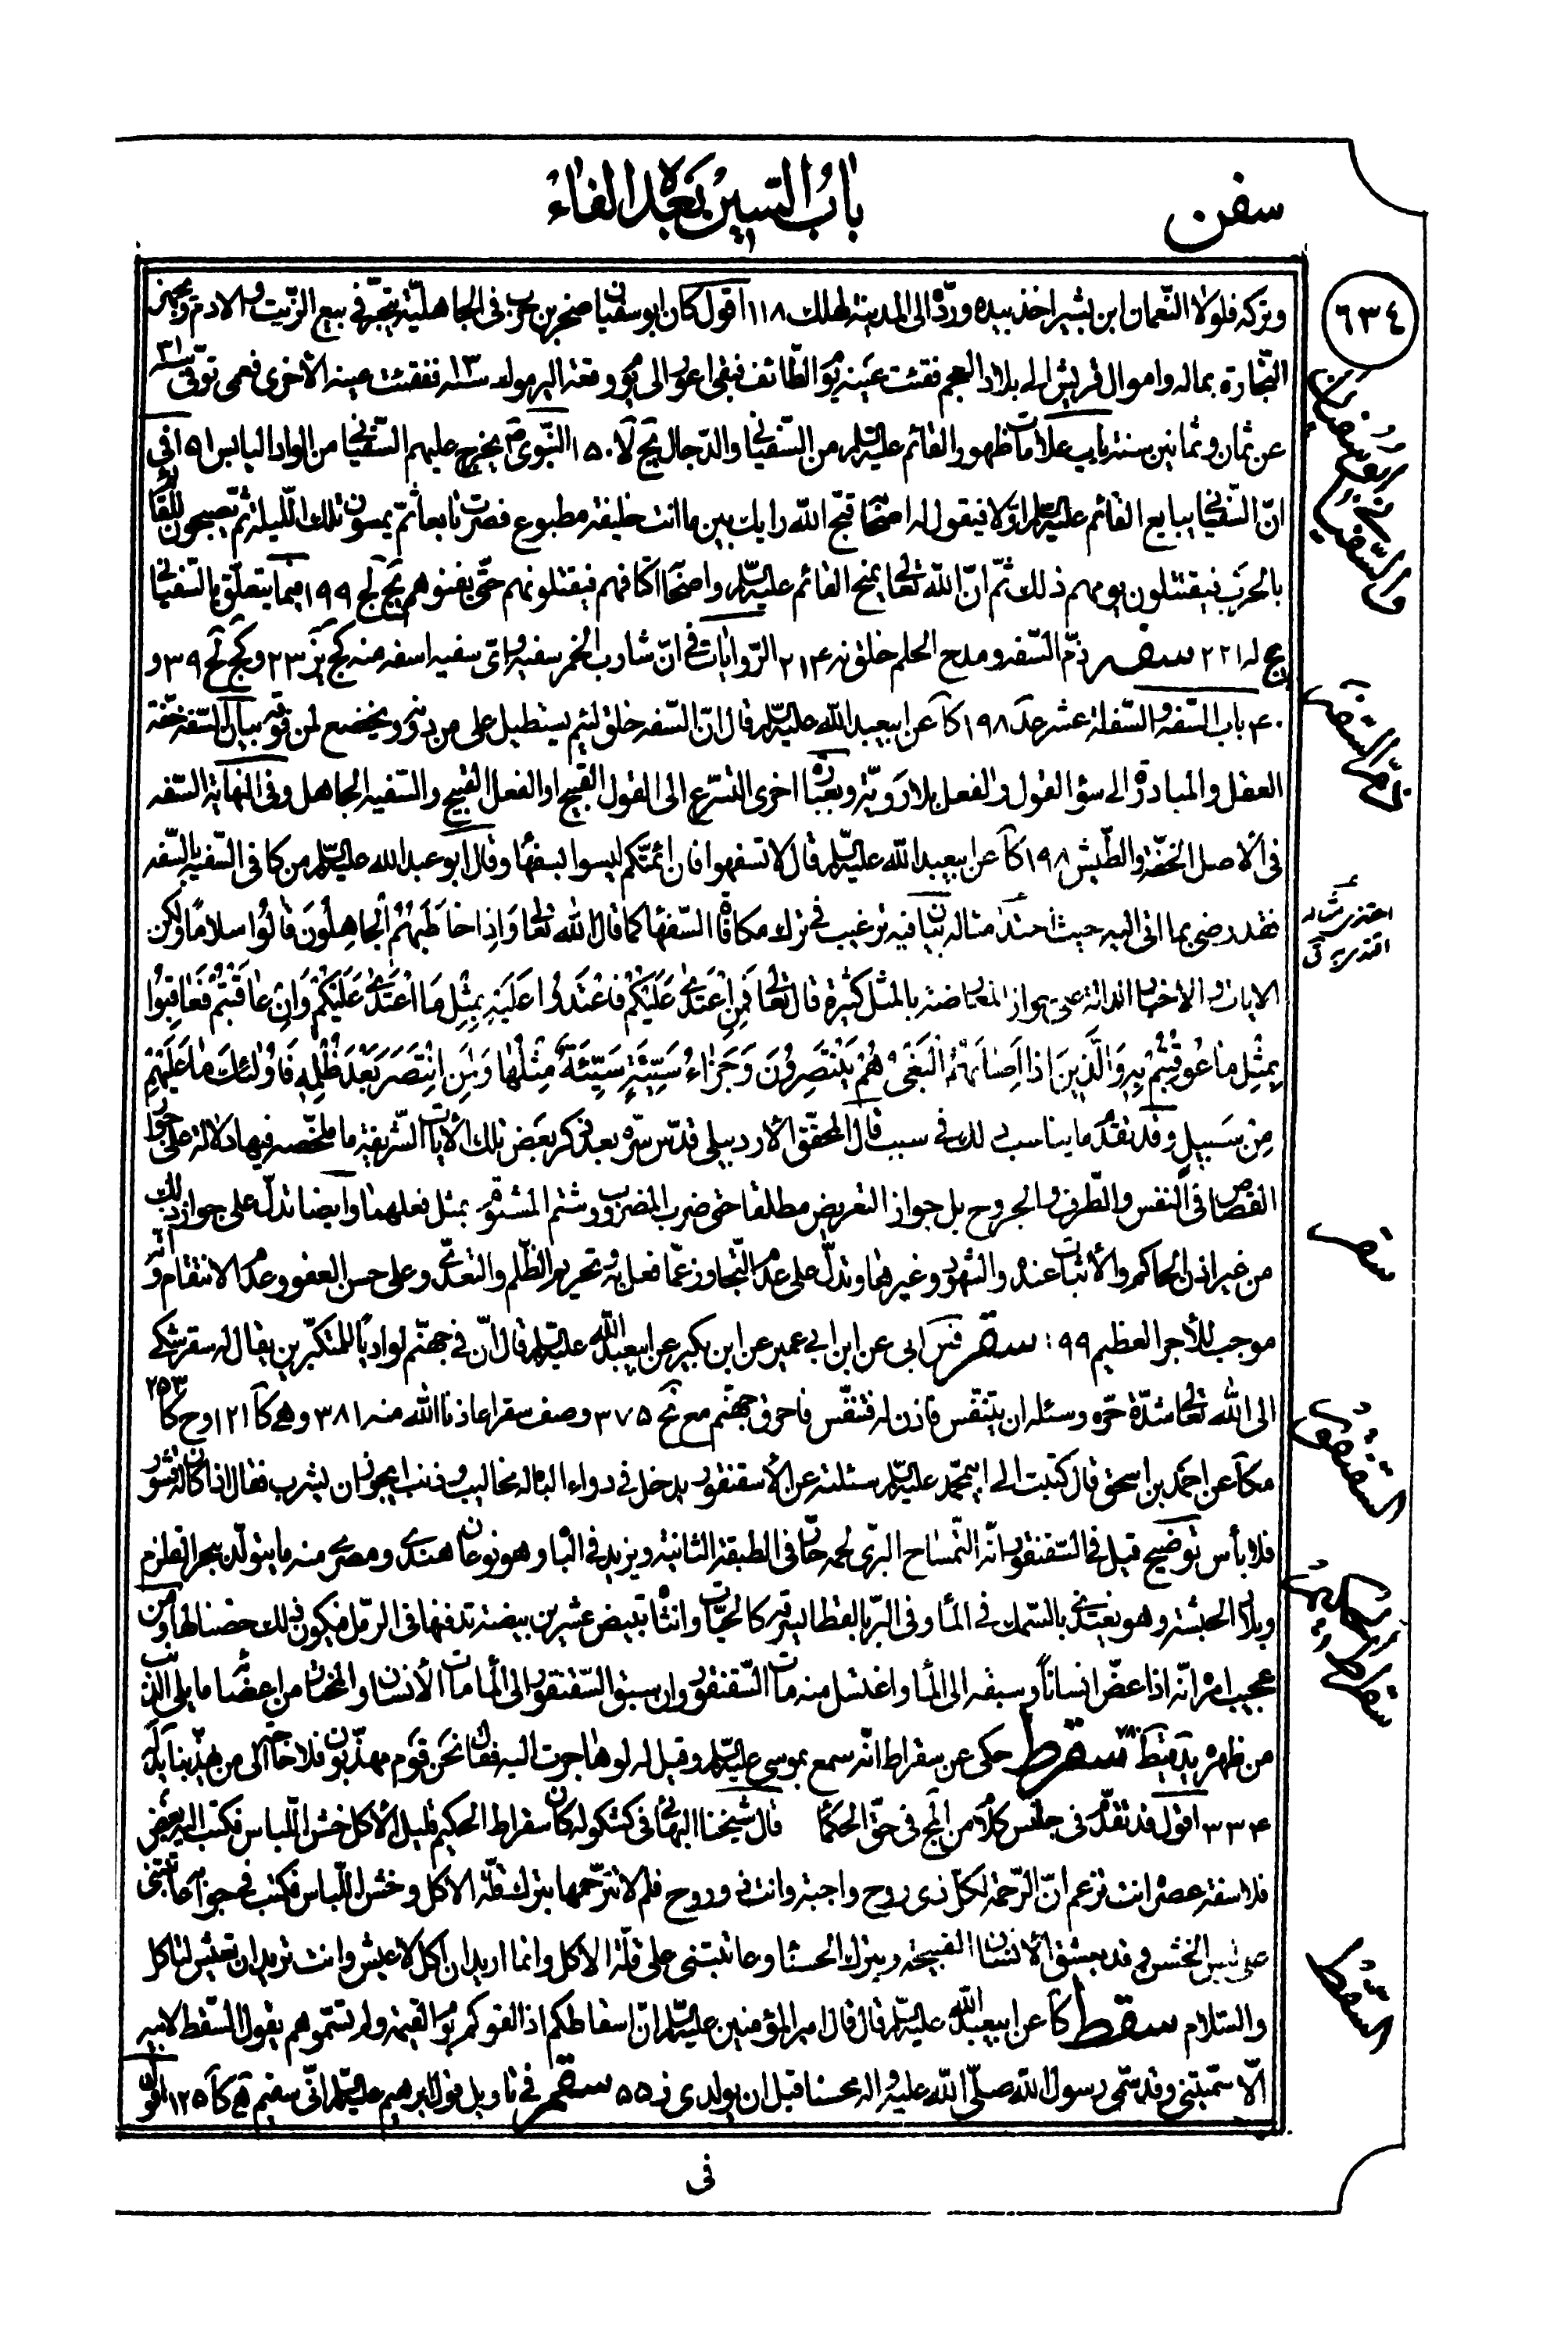 سفن
باب السين بعده الفاء
٦٣٤
وتركه فلولا النّعمان ابن بشير اخذ بيده وردّه الى المدينة لهلك ١١٨ اقول كان ابو سفيان صخر بن حرب فى الجاهليّة يتّجر فى بيع الزّيت والادم ويجهز
التّجارة بماله واموال قريش الى بلاد العجم ففقئت عينه يوم الطّائف فبقى اعور الى يوم وقعة اليرموك سنه ١٣ ففقئت عينه الأخرى فعمى توفّى سنه ٣١
عن ثمان وثمانين سنة باب علامات ظهور القائم عليه السلم من السّفيانى والدّجال يج لا ١٥٠ النّبوىّ يخرج عليهم السّفيانى من الواد اليابس ١٥١ فى
انّ السّفيانى يبايع القائم عليه السلم اوّلا فيقول له اصحابه قبّح الله رايك بين ما انت خليفة مطبوع فصرت تابعا ثمّ يمسون تلك اللّيلة ثمّ يصبحون للقائم
بالحرب فيقتتلون يومهم ذلك ثمّ انّ الله تعالى يمنح القائم عليه السلم واصحابه اكتافهم فيقتلونهم حتّى يفنوهم يج لج ١٩٩ فيما يتعلّق بالسّفيانى
يج له ٢٢١ سفه ذمّ السّفه ومدح الحلم خلق نه ٢١۴ الرّوايات فى انّ شارب الخمر سفيه واىّ سفيه اسفه منه كج يز ٢٣ وكج لج ٣٩ و
۴٠ باب السّفه والسّفلة عشر حد ١٩٨ كا عن ابيعبد الله عليه السلم قال انّ السّفه خلق لئيم يستطيل على من دونه ويخضع لمن فوقه بيان السّفه خفّة
العقل والمبادرة الى سوء القول والفعل بلا رويّة وبعبارة اخرى التسرّع الى القول القبيح او الفعل القبيح والسّفيه الجاهل وفى النهاية السّفه
فى الأصل الخفّة والطّيش ١٩٨ كا عن ابيعبد الله عليه السلم قال لا تسفهوا فان ائمّتكم ليسوا بسفهاء وقال ابو عبد الله عليه السلم من كافى السّفيه بالسّفه
فقد رضى بما اتى اليه حيث احتذى مثاله بيان فيه ترغيب فى ترك مكافاة السّفهاء كما قال الله تعالى وَاِذا خاطَبَهُمُ الْجاهِلُونَ قالُوا سلامًا ولكن
الايات والاخبار الدالة على جواز المعارضة بالمثل كثيرة قال تعالى فَمَنِ اعْتَدى عَلَيْكُمْ فَاعْتَدُوا عَلَيْهِ بِمِثْلِ مَا اعْتَدى عَلَيْكُمْ وَاِنْ عاقَبْتُمْ فَعاقِبُوا
بِمِثْلِ ما عُوقِبْتُمْ بِهِ وَالَّذينَ اِذا اَصابَهُمُ الْبَغْىُ هُمْ يَنْتَصِرُونَ وَجَزاءُ سَيِّئَةٍ سَيِّئَةٌ مِثْلُها وَلَمَنِ انْتَصَرَ بَعْدَ ظُلْمِهِ فَاُولئِكَ ما عَلَيْهِمْ
مِنْ سَبيلٍ وقد تقدّم ما يناسب ذلك فى سبب قال المحقّق الأردبيلى قدّس سرّه بعد ذكر بعض تلك الأيات الشّريفة ما ملخّصه فيها دلالة على جواز
القصاص فى النفس والطّرف والجروح بل جواز التعريض مطلقا حتى ضرب المضروب وشتم المشتوم بمثل فعلهما وايضا تدلّ على جواز ذلك
من غير اذن الحاكم والأثبات عنده والشهود وغيرها وتدلّ على عدم التّجاوز عمّا فعل به وتحريم الظّلم والتعدّى وعلى حسن العفو وعدم الانتقام وانّه
موجب للأجر العظيم ٩٩ : سقر فس ابى عن ابن ابى عمير عن ابن بكير عن ابيعبد الله عليه السلم قال انّ فى جهنّم لواديًا للمتكبّرين يقال له سقر شكى
الى الله تعالى شدّة حرّه وسئله ان يتنفّس فاذن له فتنفّس فاحرق جهنّم مع نح ٣٧۵ وصف سقر اعاذنا الله منه ٣٨١ وهى كا ١٢١ وح كا ٢۵٣
مكا عن احمد بن اسحق قال كتبت الى ابيمحمّد عليه السلم سئلته عن الأسقنقور يدخل فى دواء الباه له مخاليب وذنب ايجوز ان يشرب فقال اذا كان له قشور
فلا بأس توضيح قيل فى السّقنقور انّه التّمساح البرّى لحمه حارّ فى الطبقة الثانية ويزيد فى الباه وهو نوعان هندى ومصرى منه ما يتولّد ببحر القلزم
وبلاد الحبشة وهو يغتذى بالسّمك فى الماء وفى البرّ بالقطا يسترقه كالحيّات وانثاه تبيض عشرين بيضة تدفنها فى الرّمل فيكون ذلك حضنا لها ومن
عجيب امره انّه اذا عضّ انسانًا وسبقه الى الماء واغتسل منه مات السّقنقور وان سبق السّقنقور الى الماء مات الأنسان والمختار من اعضائه ما يلى الذّنب
من ظهره يد قيط ٧٨٠ سقرط حكى عن سقراط انّه سمع بموسى عليه السلم وقيل له لو هاجرت اليه فقال نحن قوم مهذّبون فلا حاجة الى من يهذّبنا يد له
٣٣۴ اقول قد تقدّم فى جلنس كلام من المج فى حقّ الحكماء قال شيخنا البهائى فى كشكوله كان سقراط الحكيم قليل الأكل خشن اللّباس فكتب اليه بعض
فلاسفة عصره انت تزعم انّ الرّحمة لكلّ ذى روح واجبة وانت ذو روح فلم لا ترحمها بترك قلّة الاكل وخشن اللّباس فكتب فى جوابه عاتبتنى
على لبس الخشن وقد يعشق الأنسان القبيحة ويترك الحسناء وعاتبتنى على قلّة الاكل وانما اريد ان اكل لاعيش وانت تريد ان تعيش لتاكل
والسّلام سقط كا عن ابيعبد الله عليه السلم قال قال امير المؤمنين عليه السلم انّ اسقاطكم اذا لقوكم يوم القيمة ولم تسمّوهم يقول السّقط لابيه
الّا سمّيتنى وقد سمّى رسول الله صلّى الله عليه واله محسنا قبل ان يولد ى ز ۵۵ سقم فى تاويل قول ابرهيم عليه السلم انّى سقيم هى كا ١٢۵ اقول
فى
ذمّ السّفه
احتذى مثاله
اقتدى به ق
سقر
السّقنقور
السّقط